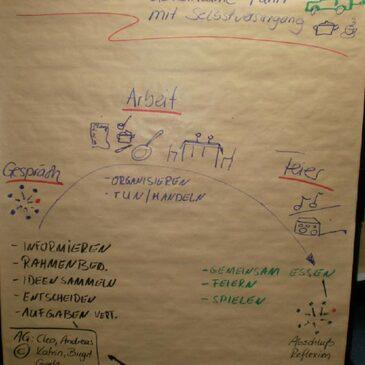 mit Selbstversorgung
Arbeit
Gespräch
Feier
- ORGANISIEREN
- TUN/HANDELN
- INFORMIEREN
- RAHMENBED.
- IDEEN SAMMELN
- ENTSCHEIDEN
- AUFGABEN VERT.
- GEMEINSAM ESSEN
- FEIERN
- SPIELEN
AG: Cleo, Andreas
© Katrin, Birgit
Abschluß
Reflexion